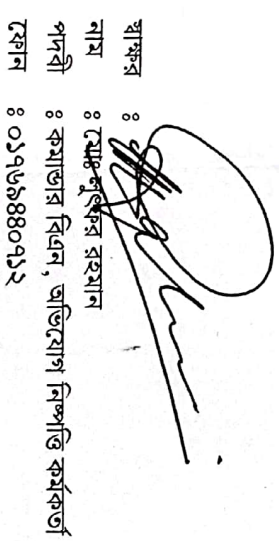 স্বাক্ষর :
নাম : মোঃ লুৎফর রহমান
পদবী : কমান্ডার বিএন, অভিযোগ নিষ্পত্তি কর্মকর্তা
ফোন : ০১৭৬৯৪৪০৭১২